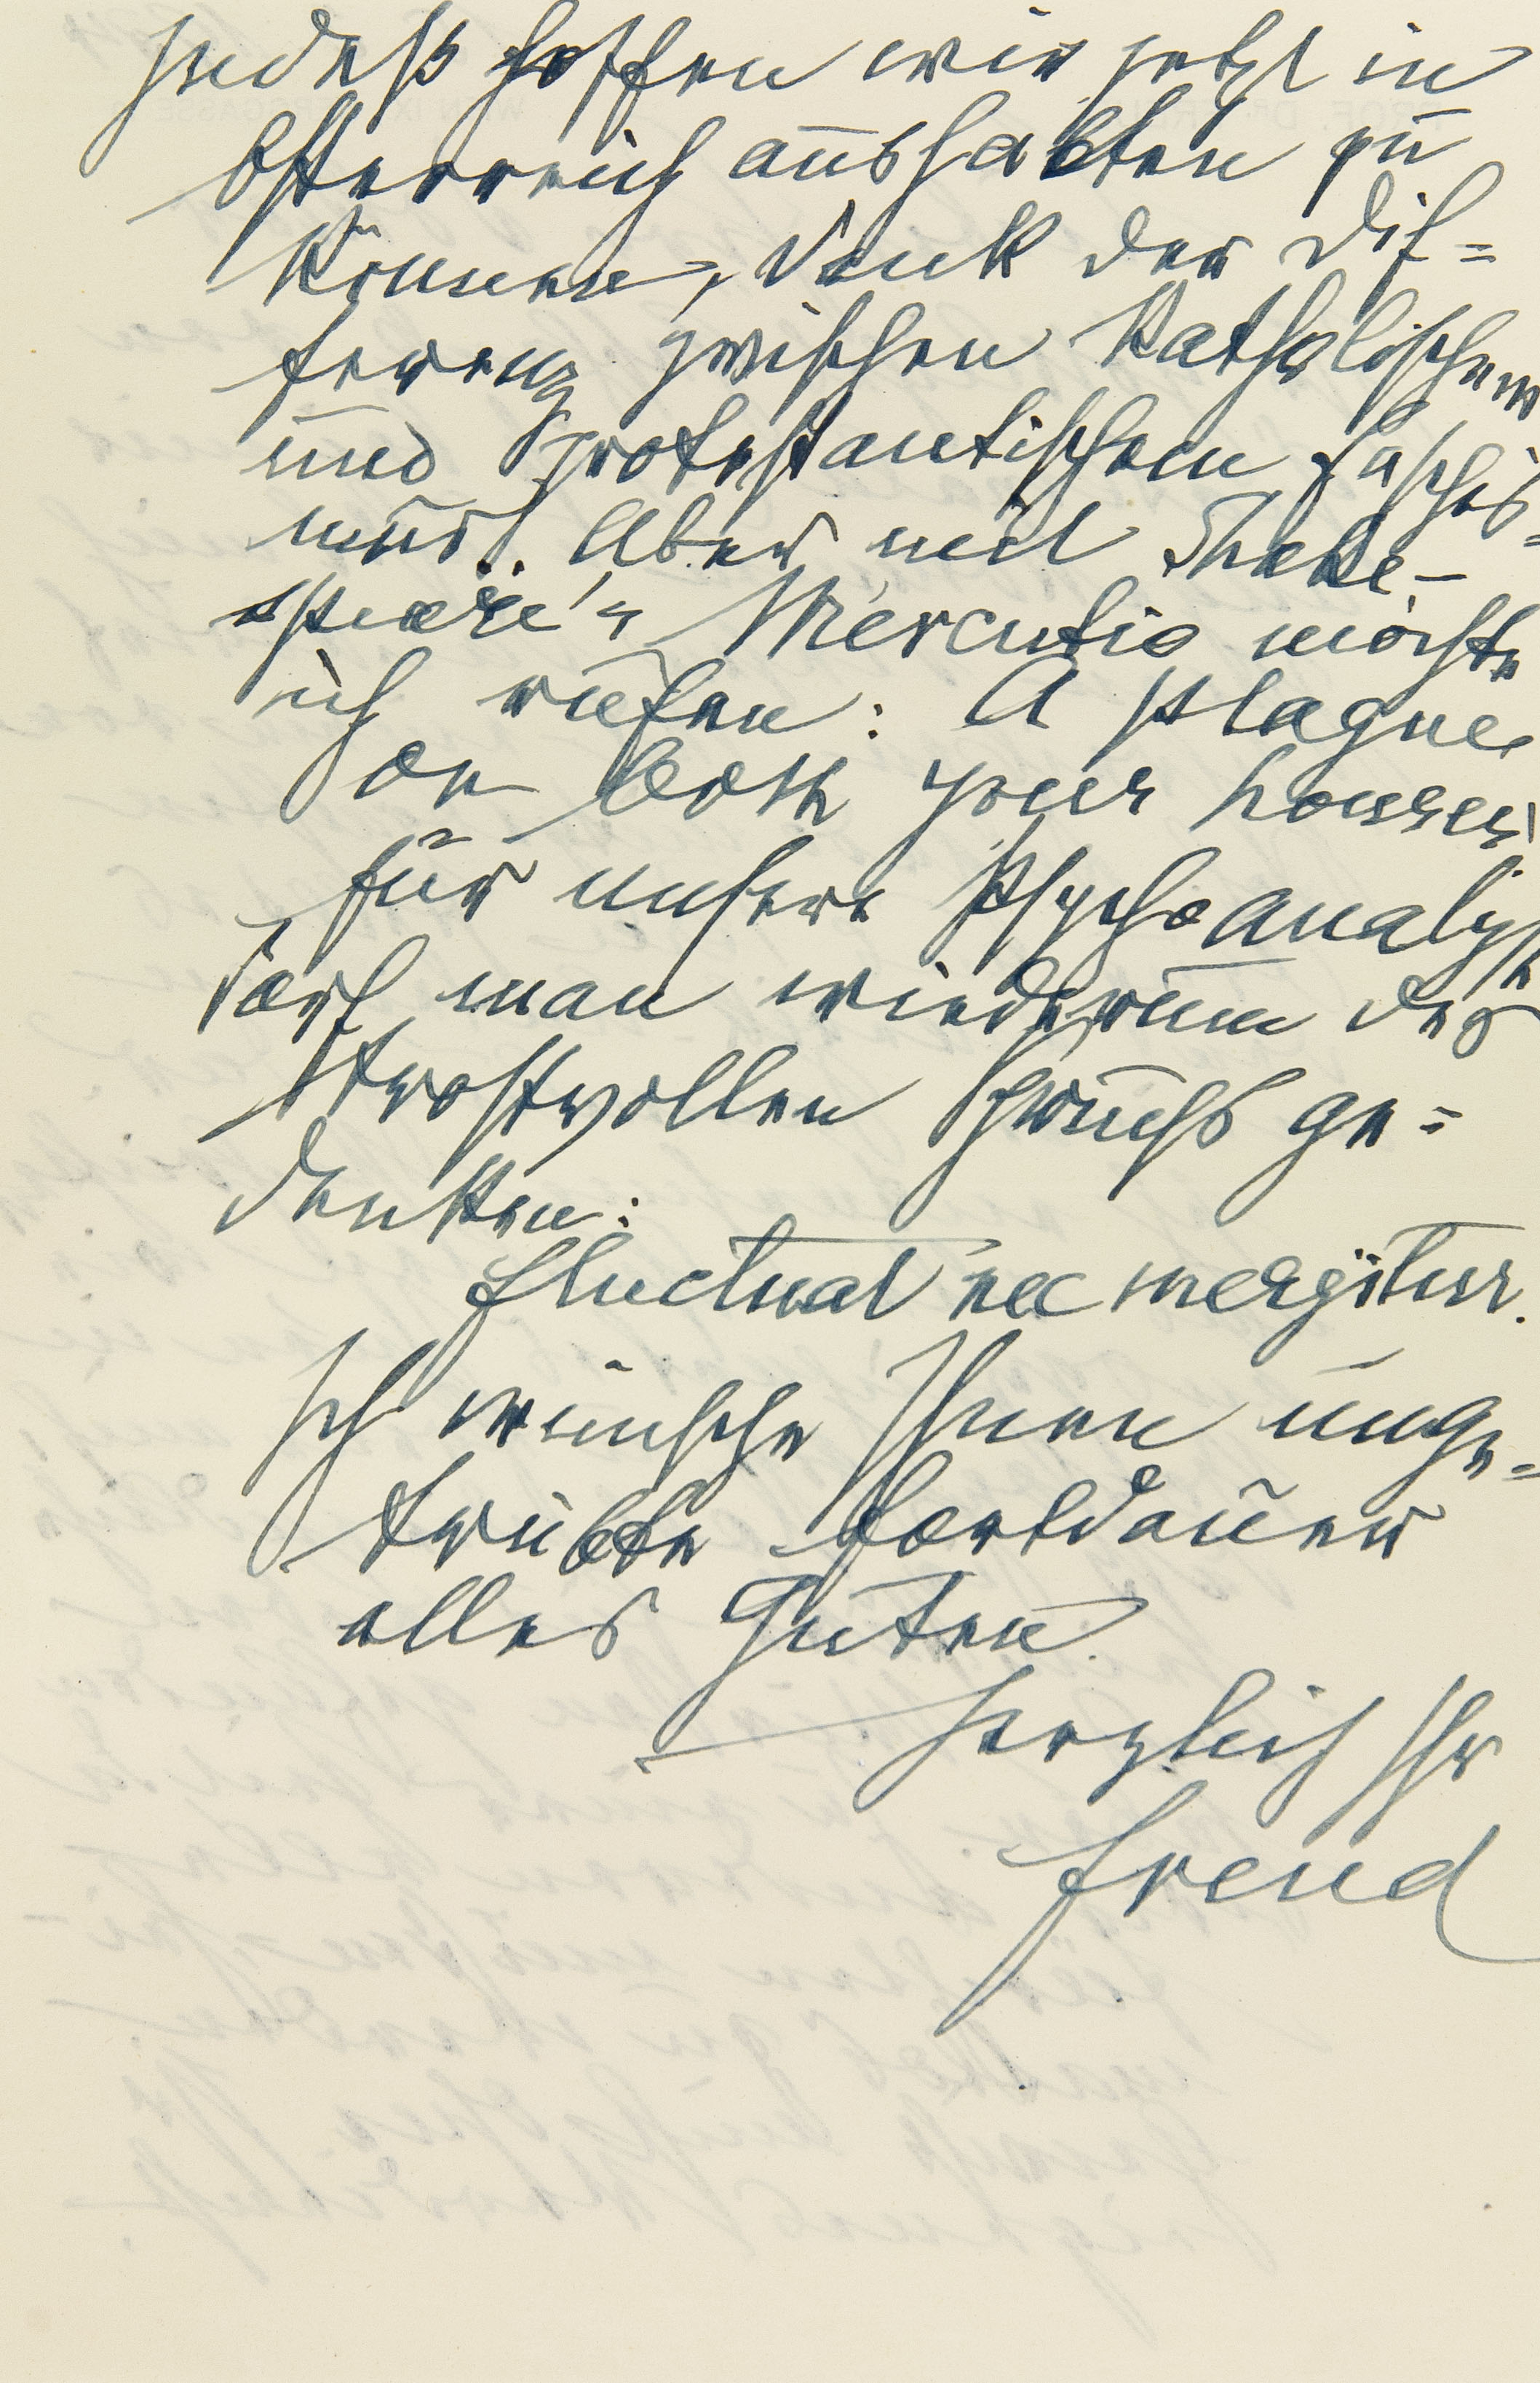 Indeß hoffen wir jetzt in
Österreich aushalten zu
können, Dank der Dif=
ferenz zwischen Katholischem
und protestantischem Faschis=
mus. Aber mit Shake-
speare's Mercutio möchte
ich rufen: A plague
on both your houses!
für unsere Psychoanalyse
darf man wiederum des
trostvollen Spruchs ge=
denken:
fluctuat nec mergitur.
Ich wünsche Ihnen unge=
trübte Fortdauer
alles Guten.
Herzlich Ihr
Freud